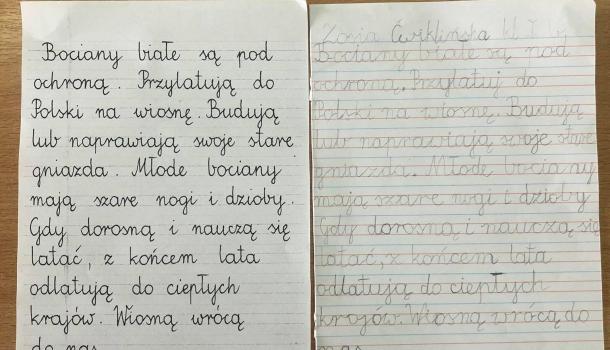 Bociany białe są pod
ochroną. Przylatują do
Polski na wiosnę. Budują
lub naprawiają swoje stare
gniazda. Młode bociany
mają szare nogi i dzioby.
Gdy dorosną i nauczą się
latać, z końcem lata
odlatują do ciepłych
krajów. Wiosną wrócą
do nas
Zosia Ćwiklińska kl. I
Bociany białe są pod
ochroną. Przylatuj do
Polski na wiosnę. Budują
lub naprawiają swoje stare
gniazda. Młode bociany
mają szare nogi i dzioby
Gdy dorosną i nauczą się
latać, z końcem lata
odlatują do ciepłych
krajów. Wiosną wrócą do
nas